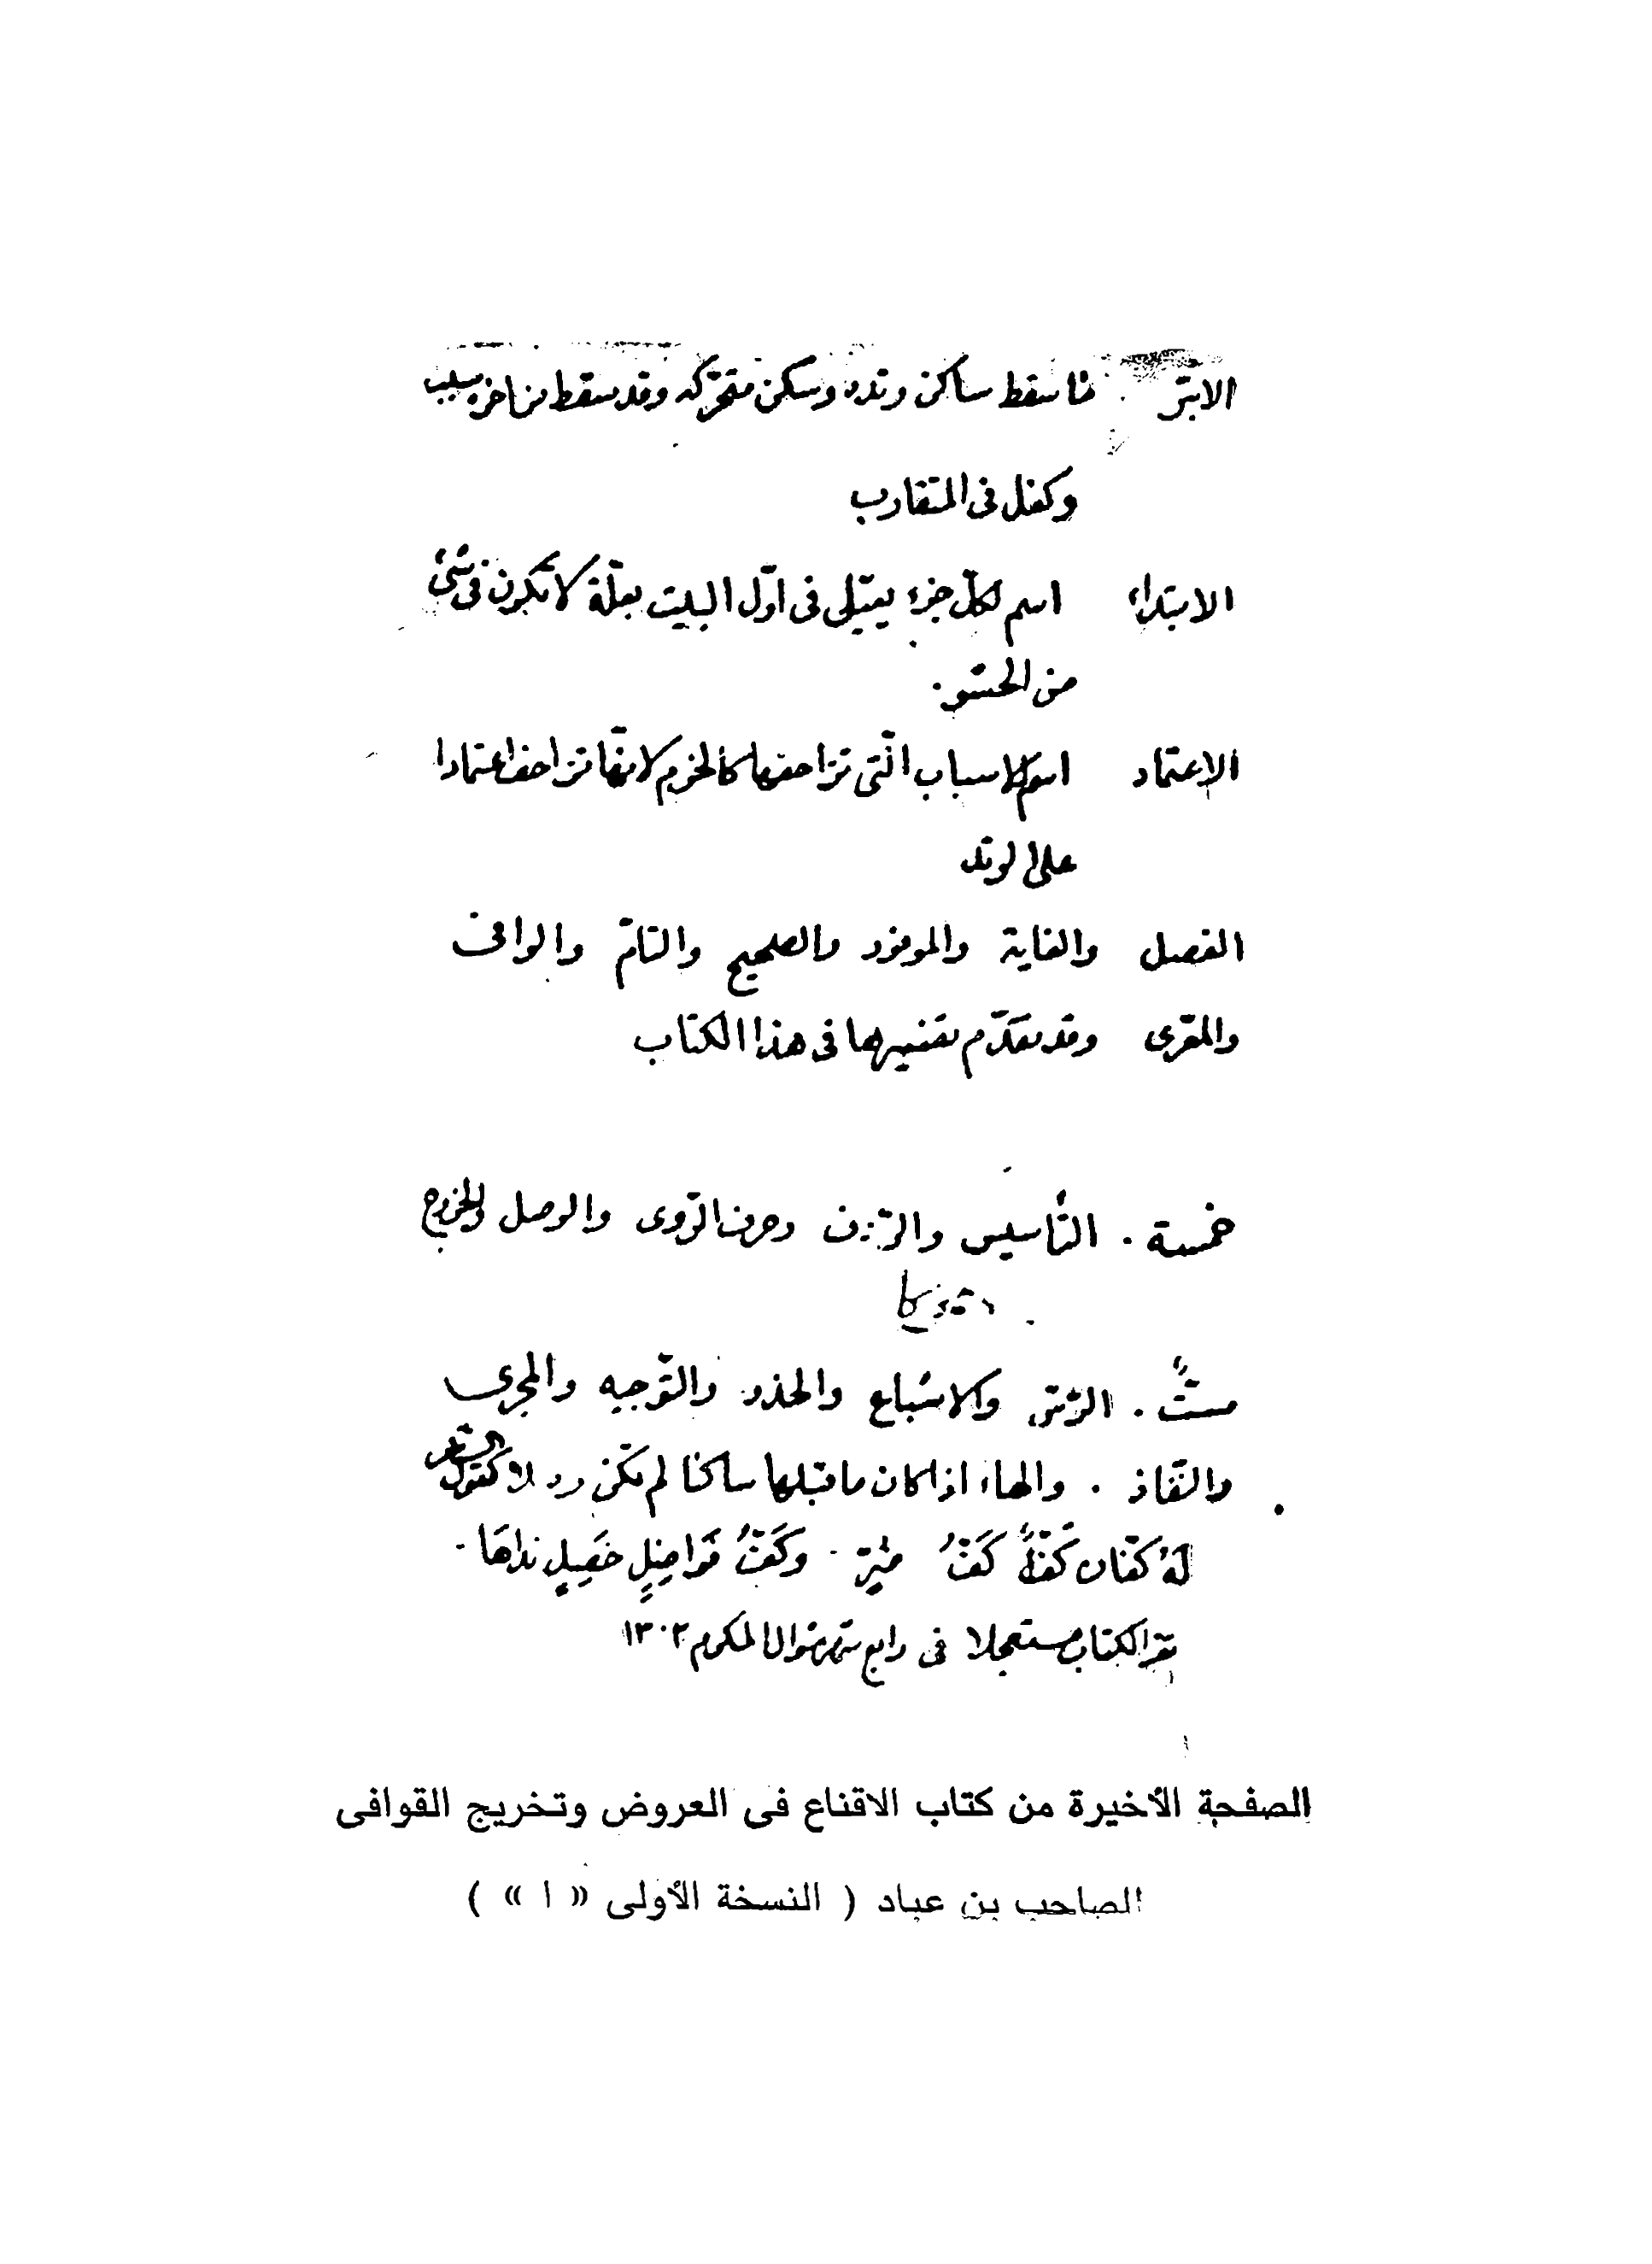 الابتر ما سقط ساكن وتده وسكن متحركه وقد سقط من اخره سبب
في المتقارب
الابتداء اسم لكلّ جزء يعتلّ فى اوّل البيت بعلّة لا تكون فى شئ
من الحشو.
الاعتماد اسم للاسباب الّتى تزاحفها كالخرم لانّها تزاحف اعتمادا
على الوتد
الفصل والغاية والموفور والصحيح والتامّ والوافى
والمعرّى وقد تقدّم تفسيرها فى هذا الكتاب
خمسة . التّأسيس والرّدف وحرف الرّوى والوصل والخروج
ستٌّ . الرّسّ والاشباع والحذو والتّوجيه والمجرى
والنّفاذ . والهاء اذا كان ما قبلها ساكنا لم تكن كقول الشاعر
لهُ كفّان كَفٌّ كَفُّ وكَفُّ فَواضِلٍ خَضِلٍ نداهَا .
تمّ الكتاب مستعجلا فى رابع شهر شوال المكرم ١٣٠٢
الصفحة الأخيرة من كتاب الاقناع فى العروض وتخريج القوافى
الصاحب بن عباد ( النسخة الأولى « ا » )